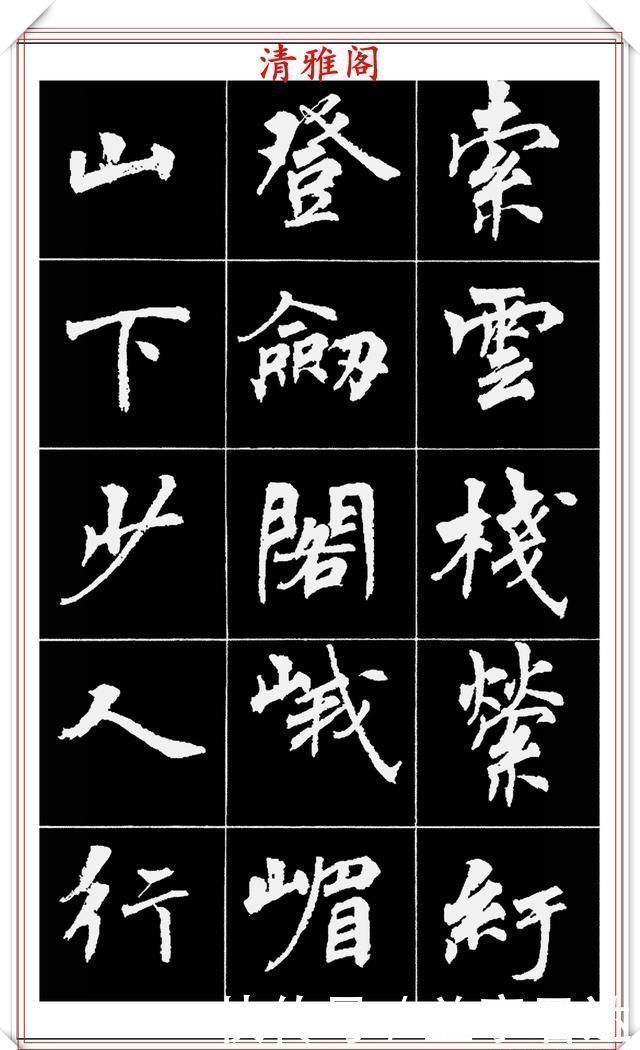 清雅阁
索雲棧縈紆
登劒閣峨嵋
山下少人行